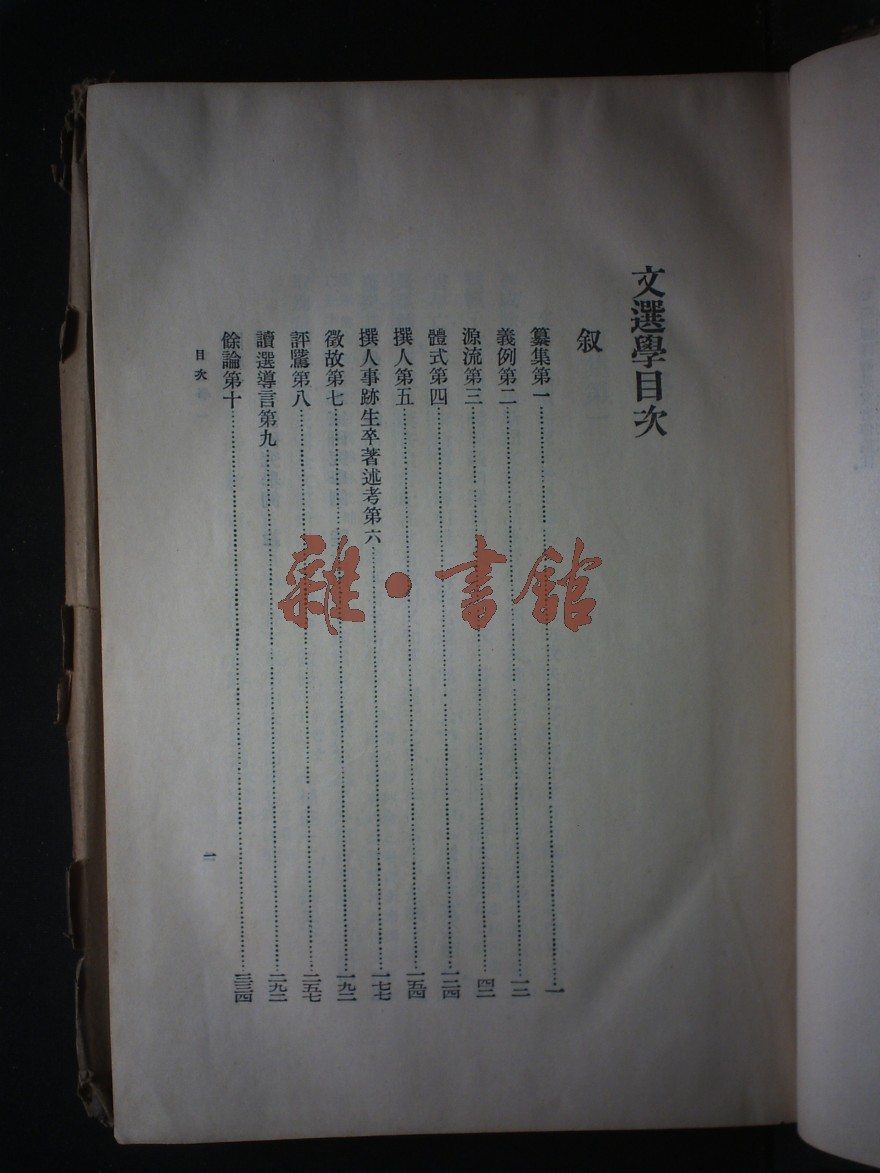 文選學目次
叙
纂集第一……一
義例第二……一二
源流第三……四二
體式第四……一二四
撰人第五……一五四
撰人事跡生卒著述考第六……一七七
徵故第七……一九二
評騭第八……二五七
讀選導言第九……二九二
餘論第十……三三四
目次
一
雜·書館